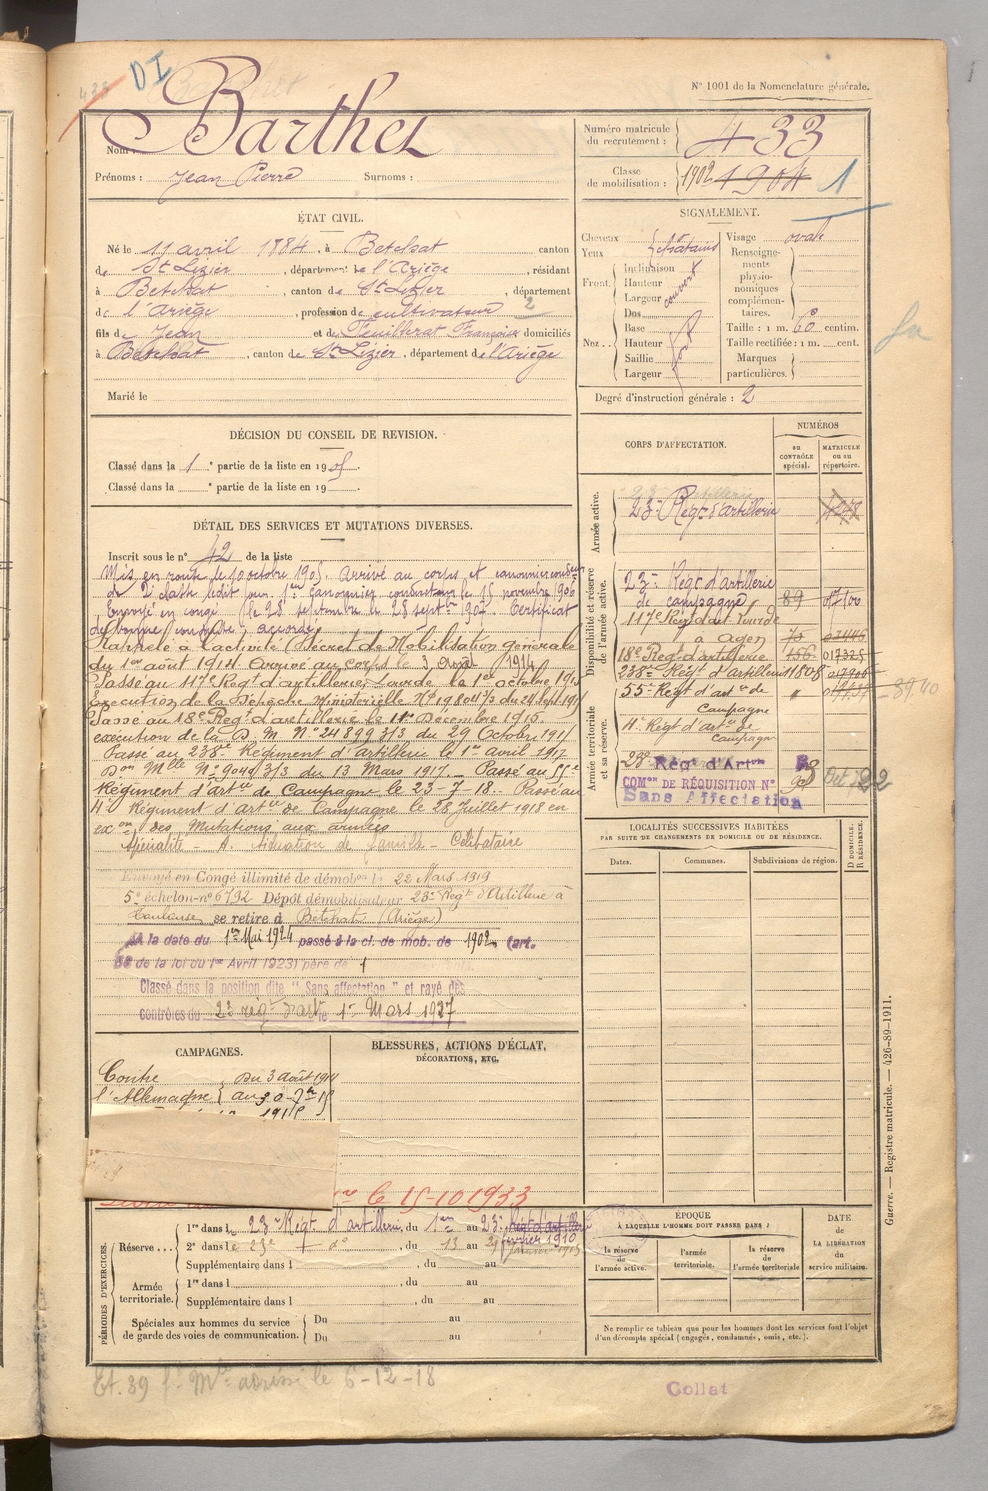 DI
N° 1001 de la Nomenclature générale.
Nom : Barthet
Prénoms : Jean Pierre Surnoms :
Numéro matricule du recrutement : 433
Classe de mobilisation : 1902 1904 1
ÉTAT CIVIL.
Né le 11 avril 1884, à Betchat canton
de St Lizier, département de l'Ariège, résidant
à Betchat, canton de St Lizier, département
de l'Ariège, profession de cultivateur 2
fils de Jean et de Feuillerat Françoise domiciliés
à Betchat, canton de St Lizier, département de l'Ariège
Marié le
SIGNALEMENT.
Cheveux châtains
Yeux
Front. Inclinaison Hauteur Largeur couvert
Nez.. Dos Base Hauteur Saillie Largeur fort
Visage ovale
Renseignements physionomiques complémentaires.
Taille : 1 m. 60 centim.
Taille rectifiée : 1 m. cent.
Marques particulières.
Degré d'instruction générale : 2
DÉCISION DU CONSEIL DE REVISION.
Classé dans la 1e partie de la liste en 1905
Classé dans la e partie de la liste en 19
DÉTAIL DES SERVICES ET MUTATIONS DIVERSES.
Inscrit sous le n° 42 de la liste
Mis en route le 10 octobre 1905. Arrivé au corps et canonnier conducteur
de 2e classe ledit jour. 1er Canonnier conducteur le 15 novembre 1906
Envoyé en congé le 28 septembre le 28 septbre 1907. Certificat
de bonne conduite accordé
Rappelé à l'activité (Décret de Mobilisation générale
du 1er août 1914. Arrivé au corps le 3 Août 1914
Passé au 117e Régt d'artillerie Lourde le 1er octobre 1915
Exécution de la Dépêche Ministérielle N° 19804 1/3 du 24 Sept 1915
Passé au 18e Régt d'artillerie le 11 Décembre 1915.
exécution de la D. M. N° 24899 3/3 du 29 Octobre 191
Passé au 238e Régiment d'artillerie le 1er avril 1917
Don Mlle N° 9049 3/3 du 13 Mars 1917. Passé au 55e
Régiment d'artie de Campagne le 23-7-18. Passé au
11e Régiment d'artie de Campagne le 28 Juillet 1918 en
exon des Mutations aux armées
Spécialité - A. Situation de famille - Célibataire
Envoyé en Congé illimité de démobon le 22 Mars 1919
5e échelon n° 6792 Dépôt démobilisateur 23e Régt d'Artillerie à
Toulouse se retire à Betchat (Ariège)
A la date du 1er Mai 1924 passé à la cl. de mob. de 1902 (art.
58 de la loi du 1er Avril 1923) père de 1
Classé dans la position dite "Sans affectation" et rayé des
contrôles du 23 régt d'artie le 1er Mars 1927
CORPS D'AFFECTATION.
NUMÉROS
au CONTRÔLE spécial.
MATRICULE ou au répertoire.
Armée active.
23e Régt d'artillerie
Disponibilité et réserve de l'armée active.
23e Régt d'artillerie
de campagne 89
117e Rgt d'art Lourde
à Agen 70
18e Régt d'artillerie 156 017325
238e Régt d'artillerie
55e Régt d'artie de Campagne "
Armée territoriale et sa réserve.
11e Régt d'artie de Campagne
23e Régt d'Arton
COMon DE RÉQUISITION N°
Sans Affectation
LOCALITÉS SUCCESSIVES HABITÉES
PAR SUITE DE CHANGEMENTS DE DOMICILE OU DE RÉSIDENCE.
Dates. Communes. Subdivisions de région. D DOMICILE. R RÉSIDENCE.
CAMPAGNES.
Contre l'Allemagne Du 3 août 1914
au
BLESSURES, ACTIONS D'ÉCLAT,
DÉCORATIONS, ETC.
le 15-10 1933
PÉRIODES D'EXERCICES.
Réserve... 1re dans le 23e Régt. d'artillerie, du 1er au 23 février 1910
2e dans le 23e d°, du 13 au
Supplémentaire dans l , du au
Armée territoriale. 1re dans l
Supplémentaire dans l , du au
Spéciales aux hommes du service de garde des voies de communication. Du au
Du au
ÉPOQUE
À LAQUELLE L'HOMME DOIT PASSER DANS :
la réserve de l'armée active. l'armée territoriale. la réserve de l'armée territoriale
DATE de LA LIBÉRATION du service militaire.
Ne remplir ce tableau que pour les hommes dont les services font l'objet
d'un décompte spécial (engagés, condamnés, omis, etc.).
Guerre. — Registre matricule. — 426-89-1911.
Et. 39 le 6-12-18
Collat